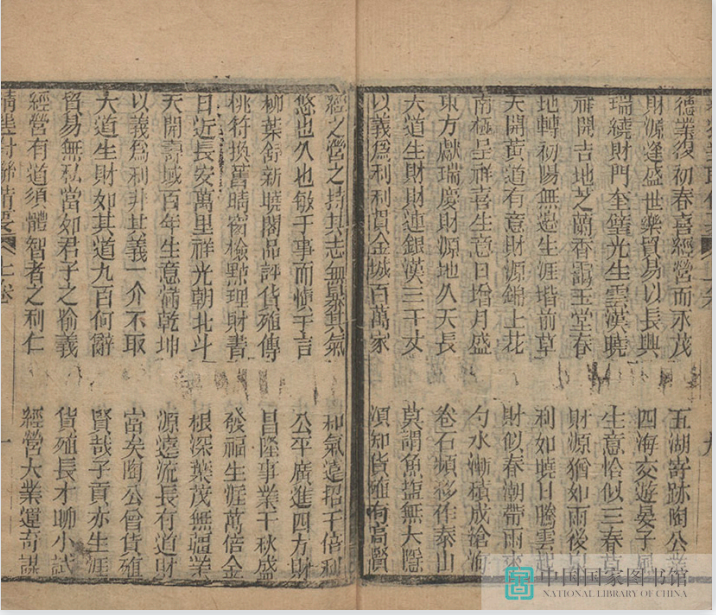 德業復初春喜經營而永茂
財源逢盛世樂貿易以長興
瑞繞財門奎璧光生雲漢曉
祥開吉地芝蘭香靄玉堂春
地轉初陽無邊生涯堦前草
天開黃道有意財源錦上花
南極呈祥喜生意日增月盛
東方獻瑞慶財源地久天長
大道生財財連銀漢三千丈
以義爲利利貫金城百萬家
五湖寄跡陶公業
四海交遊晏子風
生意恰似三春
財源猶如雨後
利如曉日騰雲起
財似春潮帶雨來
勺水漸積成滄海
卷石頻移作泰山
莫謂魚鹽無大隱
須知貨殖有高賢
經之營之持其志無暴其氣
悠也久也敏于事而慎于言
柳葉舒新暖閣品評貨殖傳
桃符換舊晴窗檢點理財書
日近長安萬里祥光朝北斗
天開壽域百年生意滿乾坤
以義爲利非其義一介不取
大道生財如其道九百何辭
貿易無私當如君子之喻義
經營有道須體智者之利仁
上卷
和氣遠招千倍利
公平廣進四方財
昌隆事業千秋盛
發福生涯萬倍金
根深葉茂無疆業
源遠流長有道財
富矣陶公曾貨殖
賢哉子貢亦生涯
貨殖長才聊小試
經營大業運奇謀
中国国家图书馆
NATIONAL LIBRARY OF CHINA